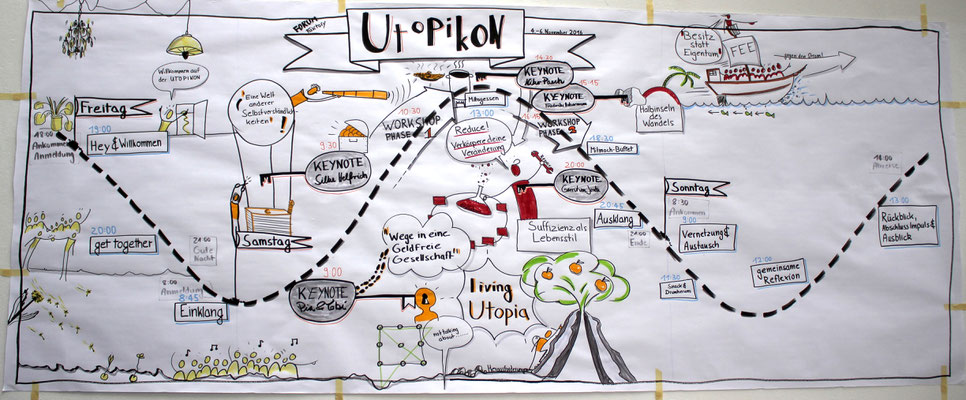 FORUM
UTOPIKON
4.-6 November 2016
Willkommen auf
der UTOPIKON
Freitag
18:00
Ankommen
Anmeldung
19:00
Hey & Willkommen
20:00
get together
24:00
Gute
Nacht
"Eine Welt
anderer
Selbstverständlich-
keiten"
9:30
KEYNOTE
Silke Helfrich
Samstag
8:00
Anmeldung
8:45
Einklang
9:00
KEYNOTE
"Wege in eine
Geldfreie
Gesellschaft!"
10:30
WORKSHOP
PHASE 1
Mittagessen
13:00
Reduce!
Verkörpere deine
Veränderung
14:30
KEYNOTE
Niko Paech
15:15
KEYNOTE
16:15
WORKSHOP
PHASE 2
Halbinseln
des
Wandels
"Besitz
statt
Eigentum"
FEE
gegen den Strom!
18:30
Mitmach-Buffet
20:00
KEYNOTE
Suffizienz als
Lebensstil
20:45
Ausklang
24:00
Ende
Living
Utopia
not talking
about...
Herausforderungen
Sonntag
8:30
Ankommen
9:00
Vernetzung &
Austausch
11:30
12:00
gemeinsame
Reflexion
13:00
Rückblick,
Abschlussimpuls &
Ausblick